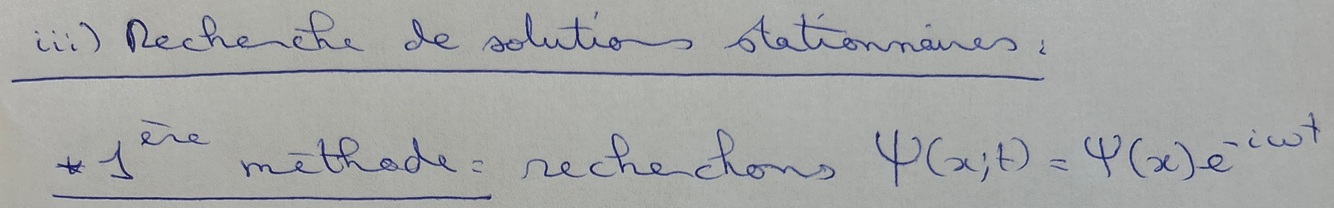 iii) Recherche de solutions stationnaires :
* 1ère méthode : recherchons Ψ(x;t) = Ψ(x)e^-iωt